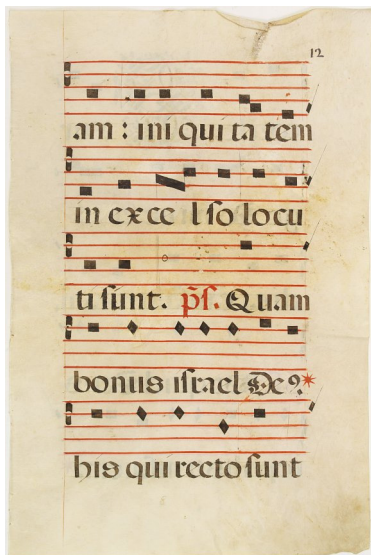 12
am : ini qui ta tem
in exce l so locu
ti sunt. p̃s. Quam
bonus israel De9*
his qui recto sunt